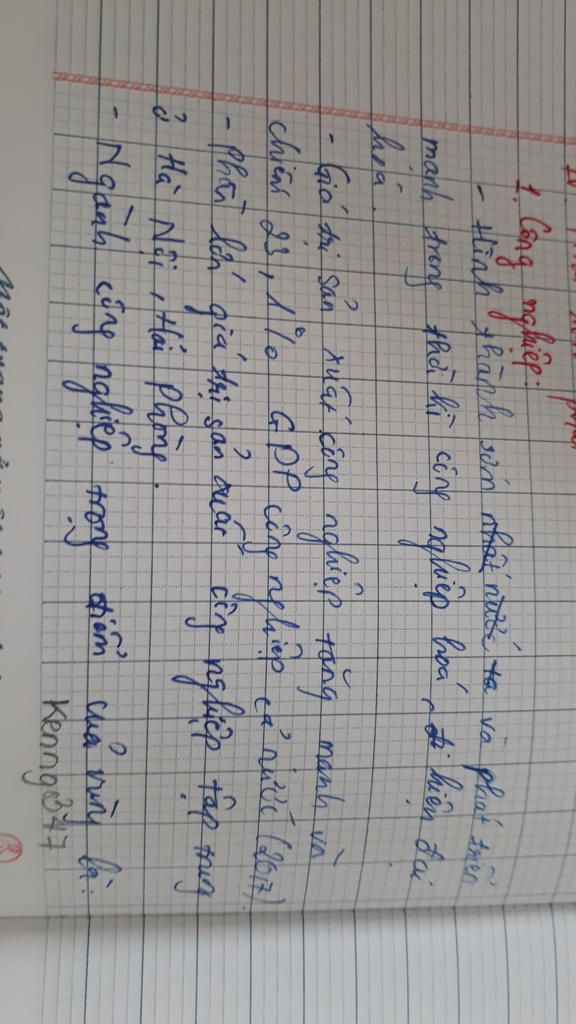 1. Công nghiệp:
- Hình thành sớm nhất nước ta và phát triển
mạnh trong thời kì công nghiệp hoá, hiện đại
hoá.
- Giá trị sản xuất công nghiệp tăng mạnh và
chiếm 23,1% GDP công nghiệp cả nước (2017).
- Phần lớn giá trị sản xuất công nghiệp tập trung
ở Hà Nội, Hải Phòng.
- Ngành công nghiệp trọng điểm của vùng là:
Kenngo347